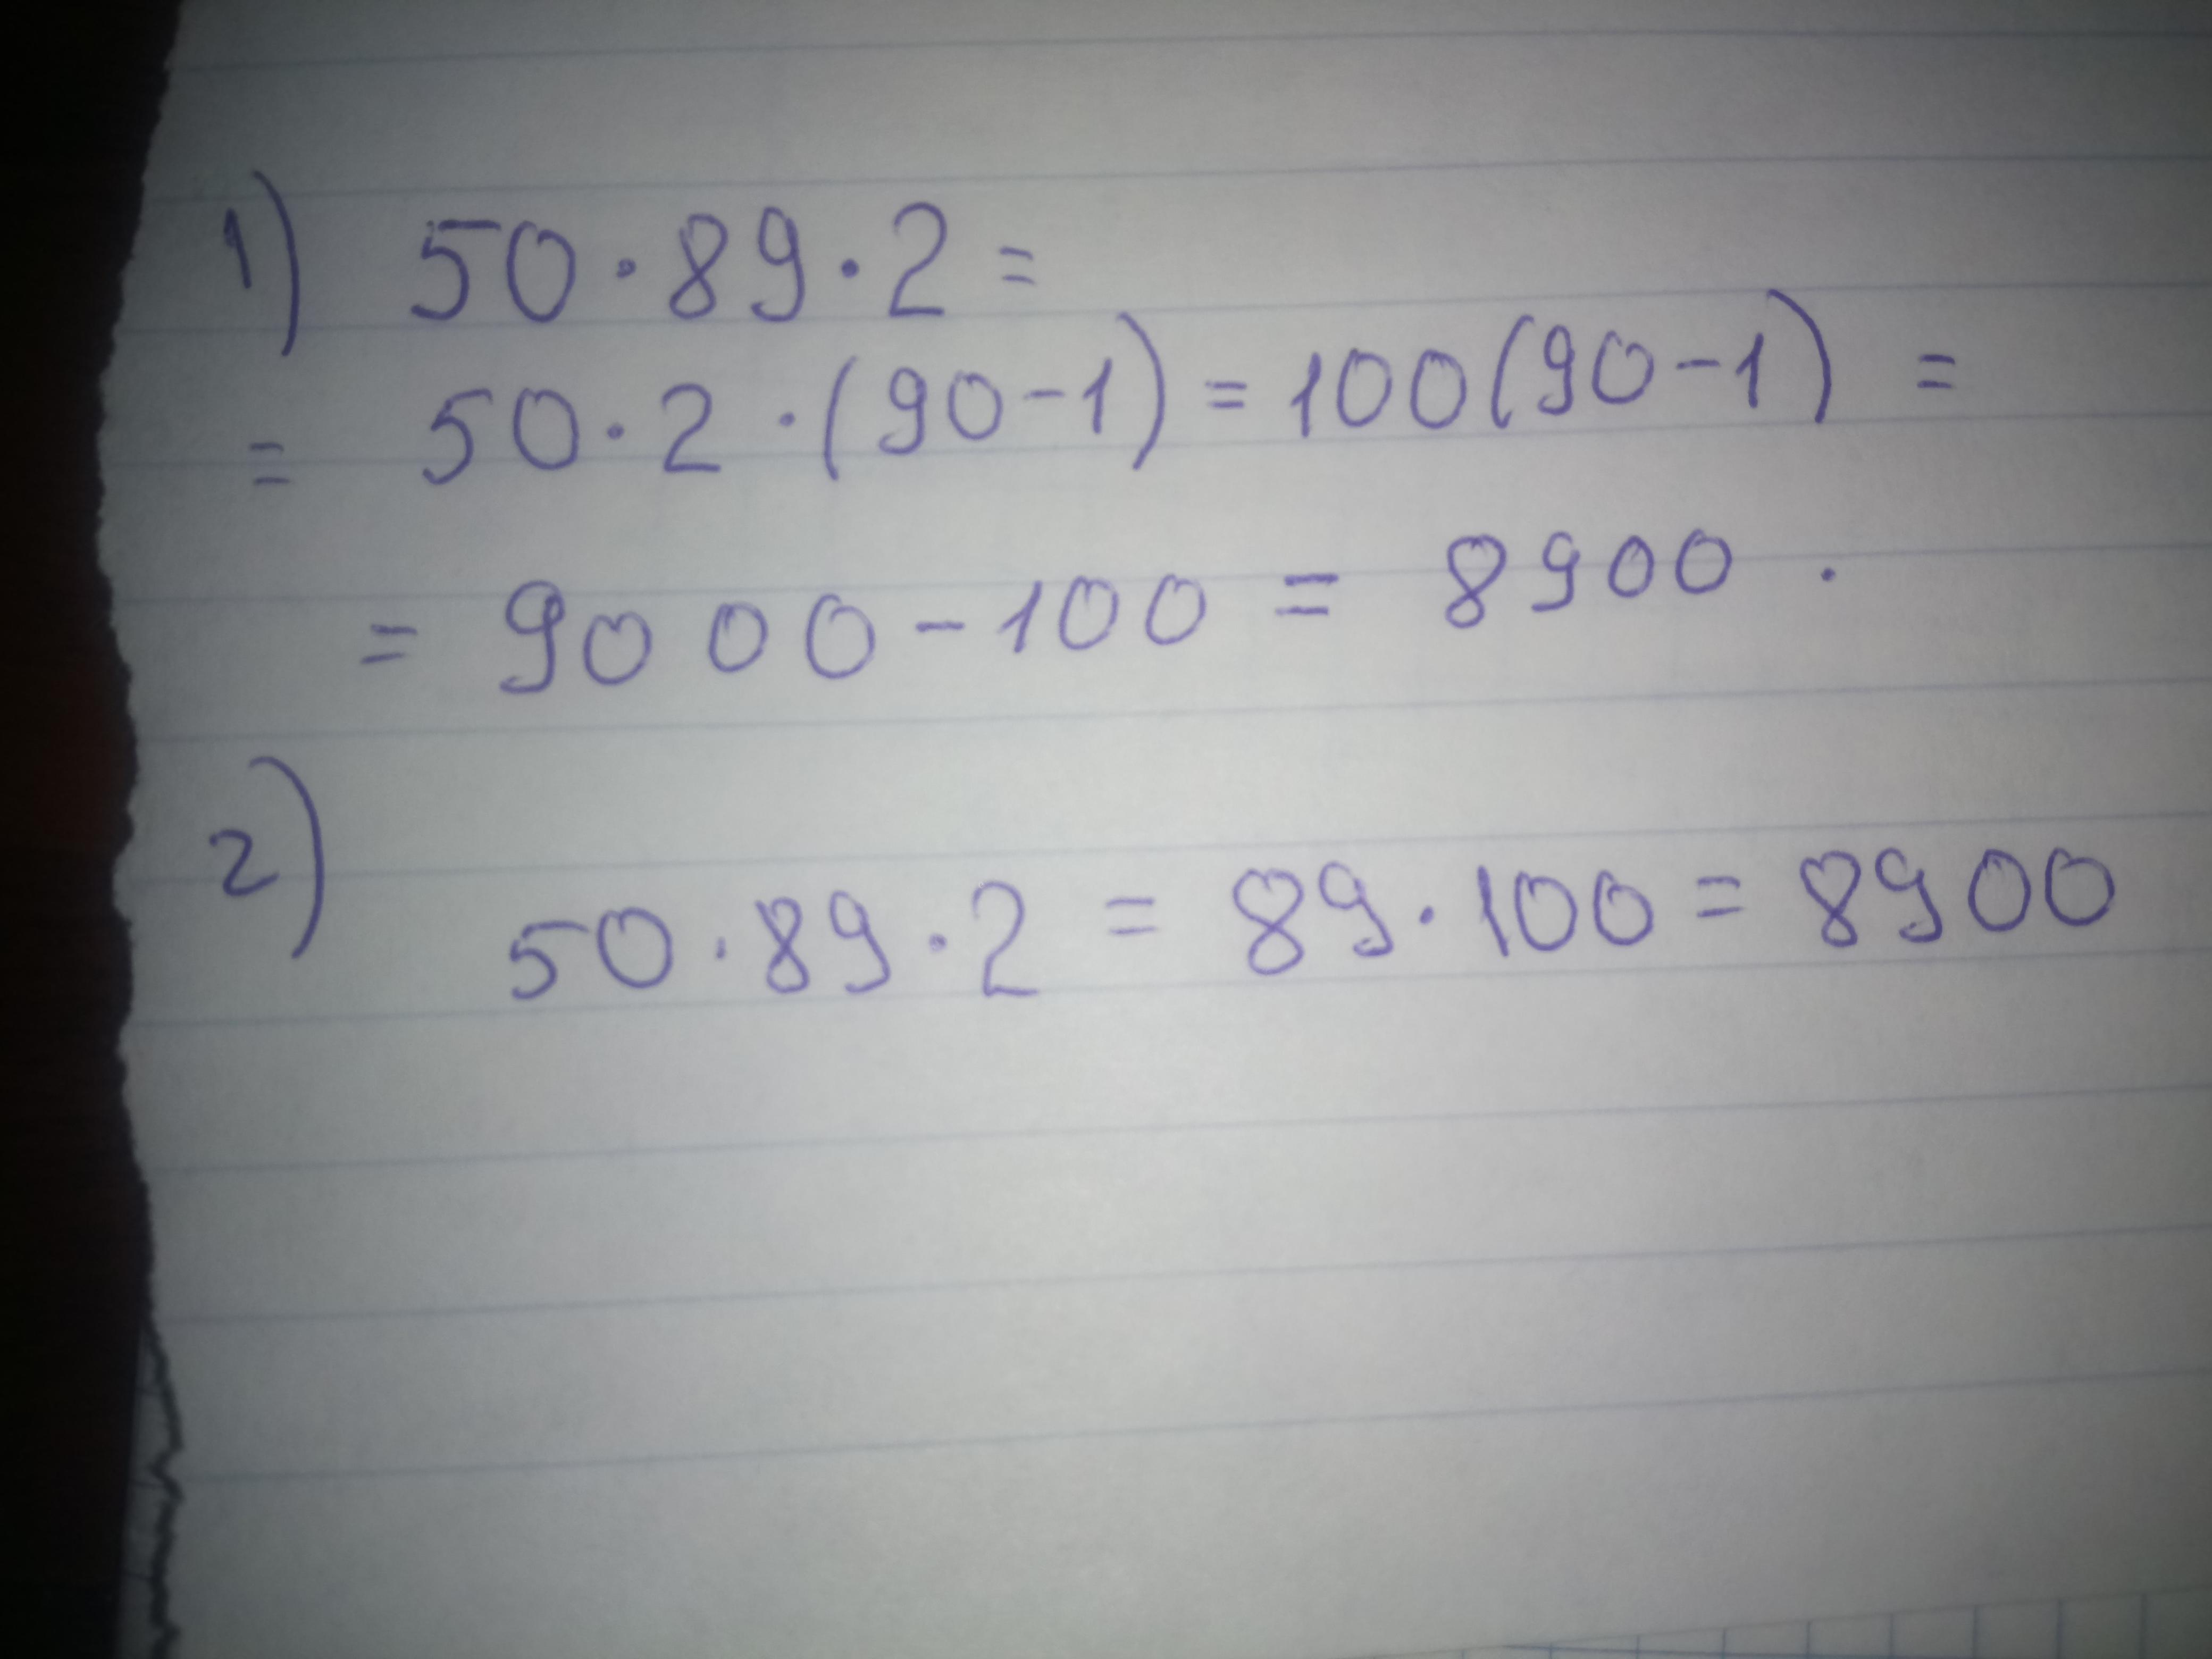 1) 50·89·2=
= 50·2·(90-1)=100(90-1) =
= 9000-100 = 8900.
2) 50·89·2 = 89·100 = 8900